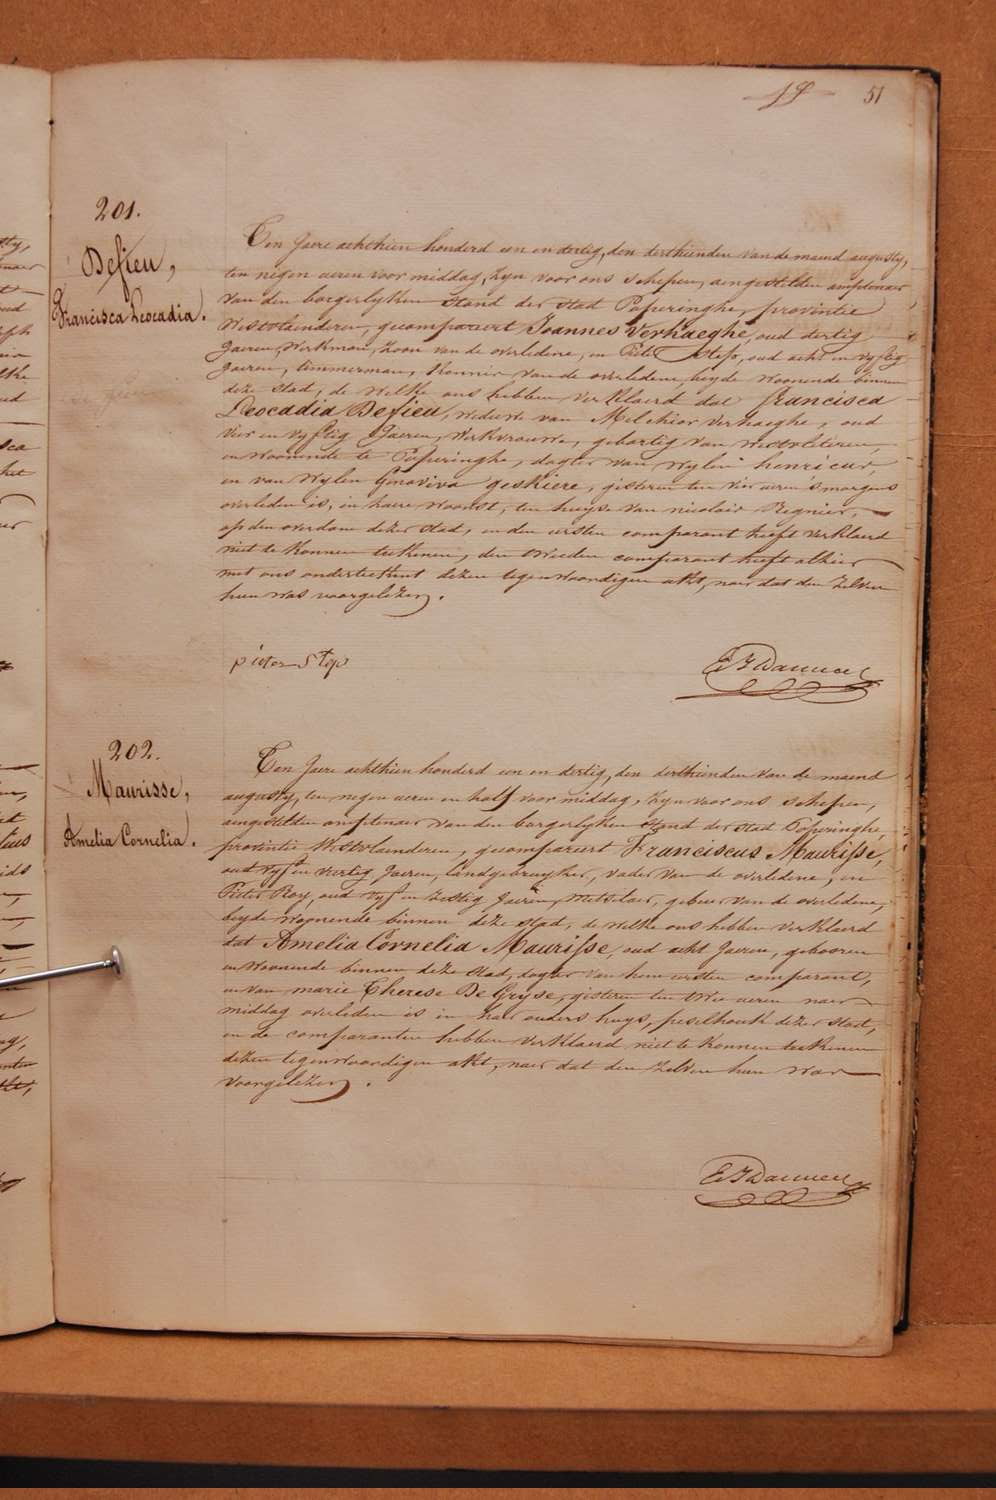 51
201.
Defieu,
Francisca Leocadia.
Ten Jaere achthien honderd een en dertig, den derthienden van de maend augusty,
ten negen ueren voor middag, zyn voor ons schepen, aengestelden amptenaer
van den borgerlyken stand der stad Poperinghe, provintie
Westvlaenderen, gecompareert Joannes Verhaeghe, oud dertig
Jaeren, Werkman, zoon van de overledene, en Pieter Step, oud acht en vyftig
Jaeren, timmerman, kennis van de overledene, beyde woonende binnen
deze stad, de welke ons hebben verklaerd dat Francisca
Leocadia Defieu, weduwe van Melchior Verhaeghe, oud
vier en vyftig Jaeren, Werkvrouwe, gebortig van Westvleteren,
en woonende te Poperinghe, dogter van wylen henricus,
en van wylen Genoviva geskiere, gisteren ten vier ueren s'morgens
overleden is, in haere woonst, ten huyse van nicolais Regnier,
op den overdam dezer stad, en den eersten comparant heeft verklaerd
niet te konnen teekenen, den tweeden comparant heeft alhier
met ons onderteekent dezen tegenwoordigen akt, naer dat den zelven
hun was voorgelezen.
pieter Step
202.
Maurisse,
Amelia Cornelia.
Ten Jaere achthien honderd een en dertig, den derthienden van de maend
augusty, ten negen ueren en half voor middag, zyn voor ons schepen,
aengestelden amptenaer van den borgerlyken stand der stad Poperinghe,
provintie Westvlaenderen, gecompareert Franciscus Maurisse,
oud vyf en veertig Jaeren, landgebruyker, vader van de overledene, en
Pieter Roy, oud vyf en zestig Jaeren, Metselaer, gebuer van de overledene,
beyde woonende binnen deze stad, de welke ons hebben verklaerd
dat Amelia Cornelia Maurisse, oud acht Jaeren, gebooren
en woonende binnen deze stad, dogter van hem eersten comparant,
en van marie Therese De Gryse, gisteren ten twee ueren naer
middag overleden is in haer ouders huys, peselhoek dezer stad,
en de comparanten hebben verklaerd niet te konnen teekenen
dezen tegenwoordigen akt, naer dat den zelven hun was
voorgelezen.